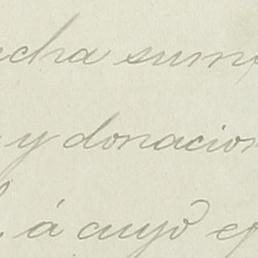 echa suma
y donacion
á cuyo ef